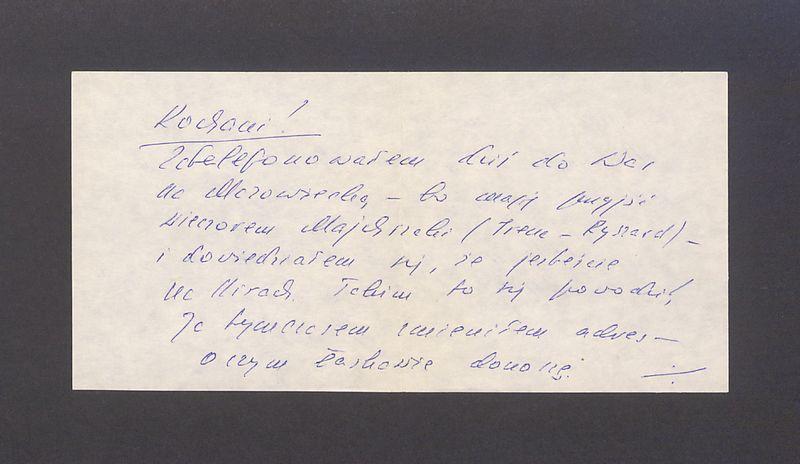 Kochani!
Zatelefonowałem dziś do Was
na Mazowiecką, – bo mają przyjść
wieczorem Majchrzaki (Irena – Ryszard) –
i dowiedziałem się, że jesteście
na Nizach. Takim to się powodzi!
Ja tymczasem zmieniłem adres –
o czym łaskawie donoszę.